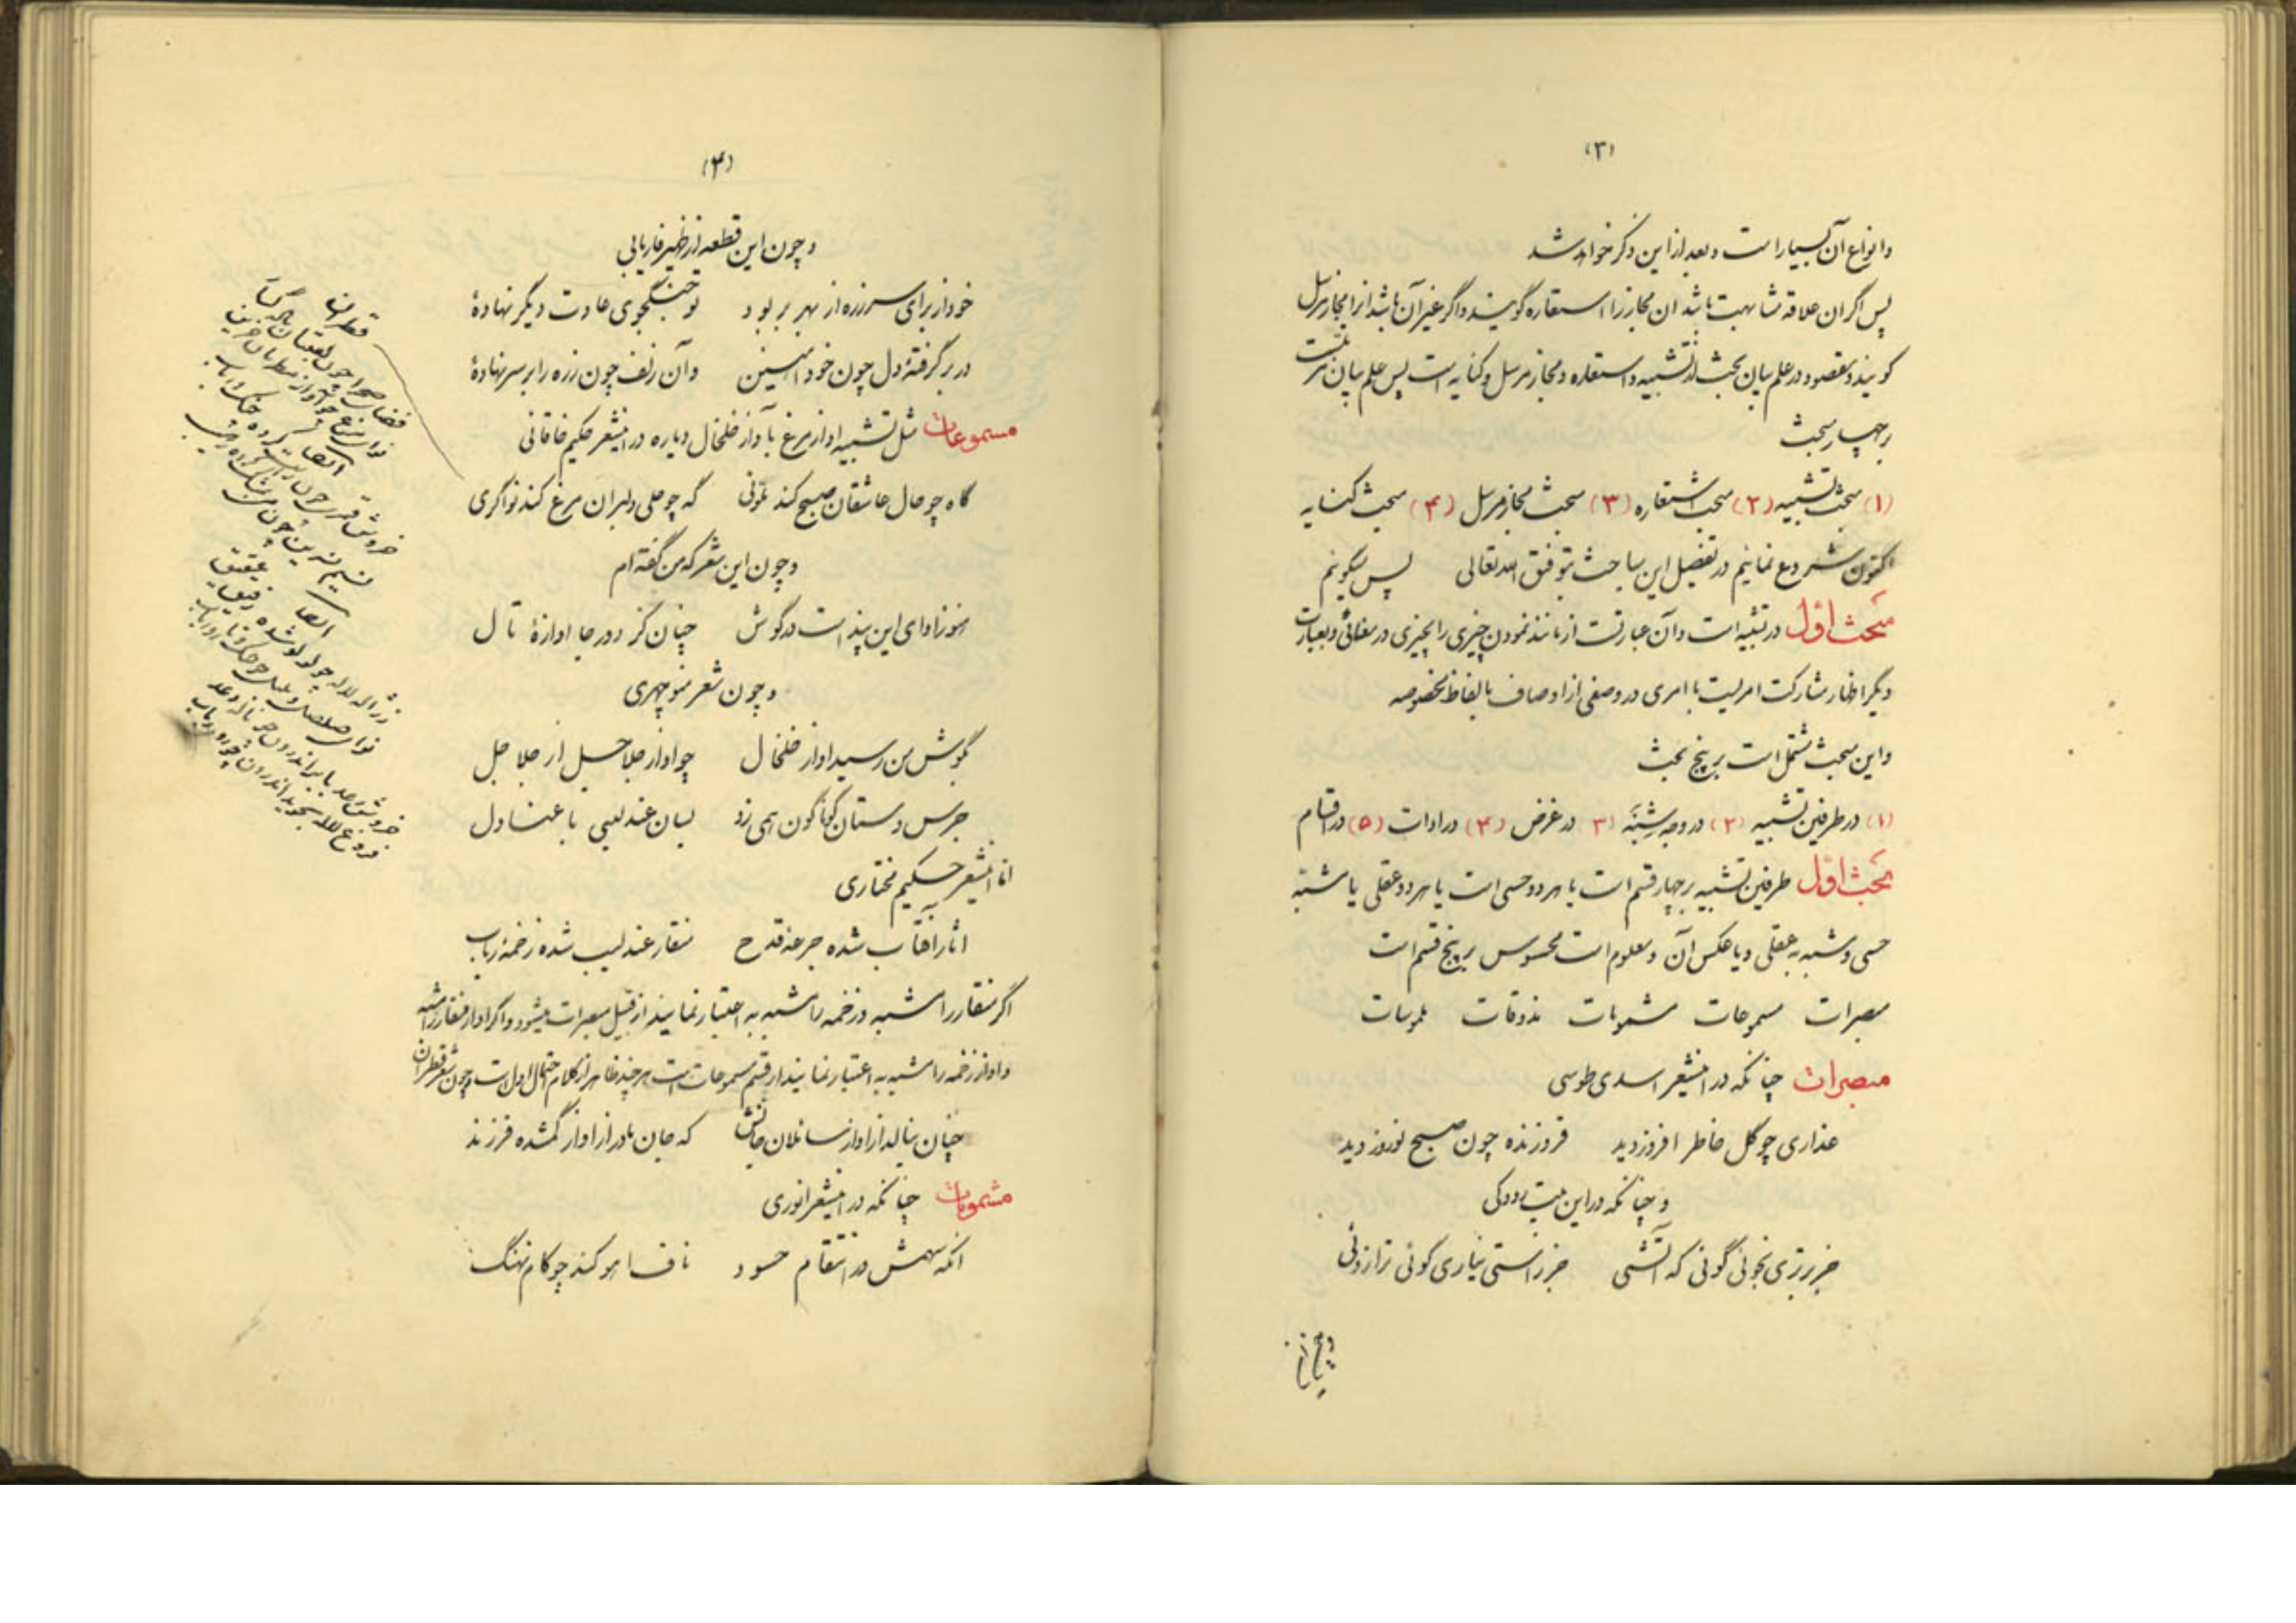 (۳)
و انواع آن بسیار است و بعد از این ذکر خواهد شد
پس اگر ان علاقه مشابهت باشد ان مجاز را استعاره گویند و اگر غیر آن باشد انرا مجاز مرسل
گویند و مقصود در علم بیان بحث از تشبیه و استعاره و مجاز مرسل و کنایه است پس علم بیان
بر چهار مبحث
(۱) مبحث تشبیه (۲) مبحث استعاره (۳) مبحث مجاز مرسل (۴) مبحث کنایه
اکنون شروع نمائیم در تفصیل این مباحث بتوفیق الله تعالی پس بگوئیم
مبحث اول در تشبیه است و آن عبارتست از مانند نمودن چیزی را بچیزی در معنائی و بعبارت
دیگر اظهار مشارکت امریست با امری در وصفی از اوصاف بالفاظ مخصوصه
و این مبحث مشتمل است بر پنج بحث
(۱) در طرفین تشبیه (۲) در وجه شبه (۳) در غرض (۴) در ادات (۵) در اقسام
بحث اول طرفین تشبیه بر چهار قسم است یا هر دو حسی است یا هر دو عقلی یا مشبه
حسی و مشبه به عقلی و یا عکس آن و معلوم است محسوس بر پنج قسم است
مبصرات مسموعات مشمومات مذوقات ملموسات
مبصرات چنانکه در اینشعر اسدی طوسی
عذاری چو گل خاطر افروز دید فروزنده چون صبح نوروز دید
و چنانکه در این بیت رودکی
جز برتری نجوئی گوئی که آتشی جز راستی نیاری گوئی ترازوئی
و چون این
(۴)
و چون این قطعه از ظهیر فاریابی
خود از برای سر زره از بهر بر بود تو جنگجوی عادت دیگر نهادهٔ
در بر گرفتهٔ دل چون خود آهنین و آن زلف چون زره را بر سر نهادهٔ
مسموعات مثل تشبیه اواز مرغ بآواز خلخال و یاره در اینشعر حکیم خاقانی
گاه چو حال عاشقان صبح کند تلونی گه چو حلی دلبران مرغ کند نواگری
و چون این شعر که من گفته ام
هنوز اوای این پند است در گوش چنان کز دور جا اوازهٔ تال
و چون شعر منوچهری
بگوش من رسید اواز خلخال چو اواز جلاجل از جلاجل
جرس دستان گوناگون همی زد بسان عندلیبی با عنادل
اما اینشعر حکیم مختاری
اثار افتاب شده جرعه قدح منقار عندلیب شده زخمهٔ رباب
اگر منقار را مشبه و زخمه را مشبه به اعتبار نمایند از قبیل مبصرات میشود و اگر اواز منقار را مشبه
و اواز زخمه را مشبه به اعتبار نمایند از قسم مسموعات است هر چند ظاهر از کلام احتمال اول است و چون شعر قطران
چنان بنالد از اواز سائلان جانش که جان مادر از اواز گمشده فرزند
مشمومات چنانکه در اینشعر انوری
انکه سهمش در انتقام حسود ناف اهو کند چو کام نهنگ
قطران
ایضا
ایضا